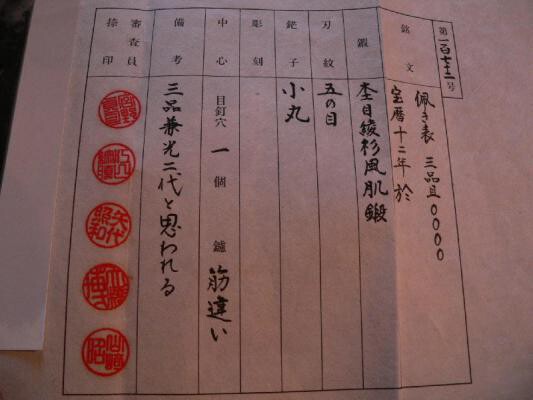 第一百七十二号
銘文 佩き表 三品且〇〇〇〇
宝暦十二年於
鍛 杢目綾杉風肌鍛
刃紋 五の目
鋩子 小丸
彫刻
中心 目釘穴 一 個 鑢 筋違い
備考 三品兼光二代と思われる
審査員捺印